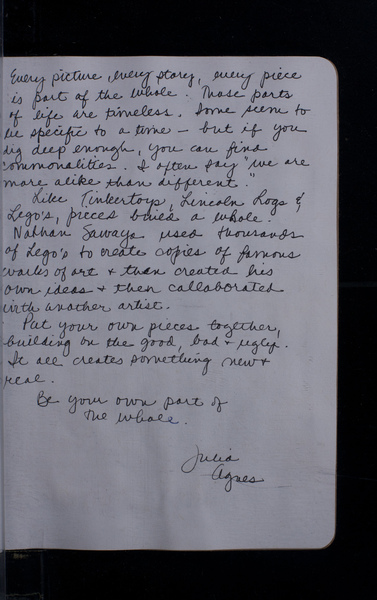 Every picture, every story, every piece
is part of the whole. Those parts
of life are timeless. Some seem to
be specific to a time - but if you
dig deep enough, you can find
commonalities. I often say "we are
more alike than different."
Like Tinkertoys, Lincoln Logs &
Lego's, pieces build a whole.
Nathan Sawaya used thousands
of Lego's to create copies of famous
works of art + than created his
own ideas + then collaborated
with another artist.
Put your own pieces together,
building on the good, bad + ugly.
It all creates something new +
real.
Be your own part of
the whole.
Julia
Agnes